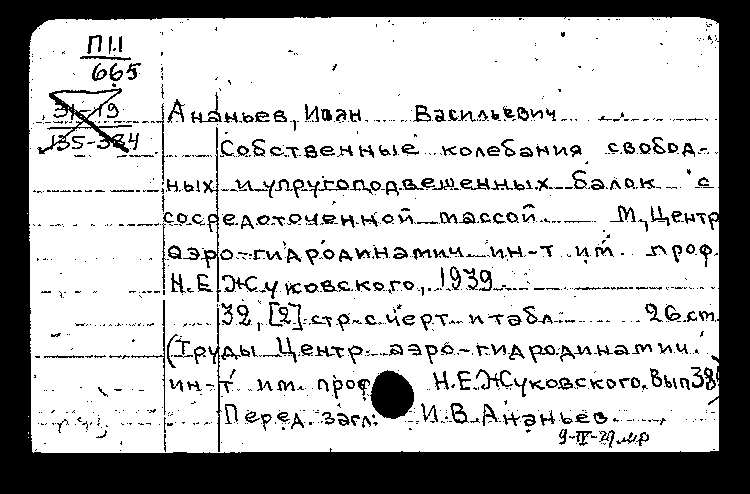 П1.1
665
31-19
135-384
Ананьев, Иван Васильевич
Собственные колебания свобод-
ных и упругоподвешенных балок с
сосредоточенной массой. М., Центр
аэро-гидродинамич. ин-т им. проф.
Н.Е.Жуковского, 1939.
32, [2] стр. с черт. и табл. 26 см.
(Труды Центр. аэро-гидродинамич.
ин-т им. проф. Н.Е.Жуковского. Вып
Перед. загл: И.В.Ананьев.